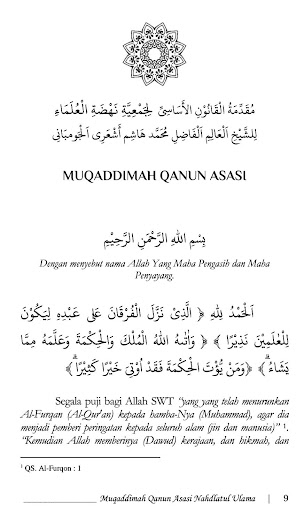 مُقَدِّمَةُ الْقَانُوْنِ الْأَسَاسِيّ لِجَمْعِيَّةِ نَهْضَةِ الْعُلَمَاءِ
لِلشَّيْخِ الْعَالِمِ الْفَاضِلِ مُحَمَّد هَاشِم أَشْعَرِي الْجُومْبَانِي
MUQADDIMAH QANUN ASASI
بِسْمِ اللهِ الرَّحْمَنِ الرَّحِيْمِ
Dengan menyebut nama Allah Yang Maha Pengasih dan Maha
Penyayang.
اَلْحَمْدُ لِلهِ ﴿ الَّذِىْ نَزَّلَ الْفُرْقَانَ عَلَى عَبْدِهِ لِيَكُوْنَ
لِلْعَلَمِيْنَ نَذِيْرًا ﴾ ﴿ وَاٰتٰهُ اللهُ الْمُلْكَ وَالْحِكْمَةَ وَعَلَّمَهُ مِمَّا
يَشَاءُ ﴾ ﴿ وَمَنْ يُؤْتَ الْحِكْمَةَ فَقَدْ اُوْتِيَ خَيْرًا كَثِيْرًا ﴾
Segala puji bagi Allah SWT “yang yang telah menurunkan
Al-Furqan (Al-Qur’an) kepada hamba-Nya (Muhammad), agar dia
menjadi pemberi peringatan kepada seluruh alam (jin dan manusia)” ¹.
“Kemudian Allah memberinya (Dawud) kerajaan, dan hikmah, dan
¹ QS. Al-Furqon : 1
Muqaddimah Qanun Asasi Nahdlatul Ulama | 9